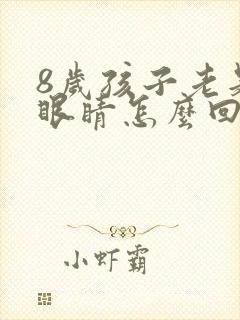 8歲孩子老
眼睛怎麼回
小虾霸